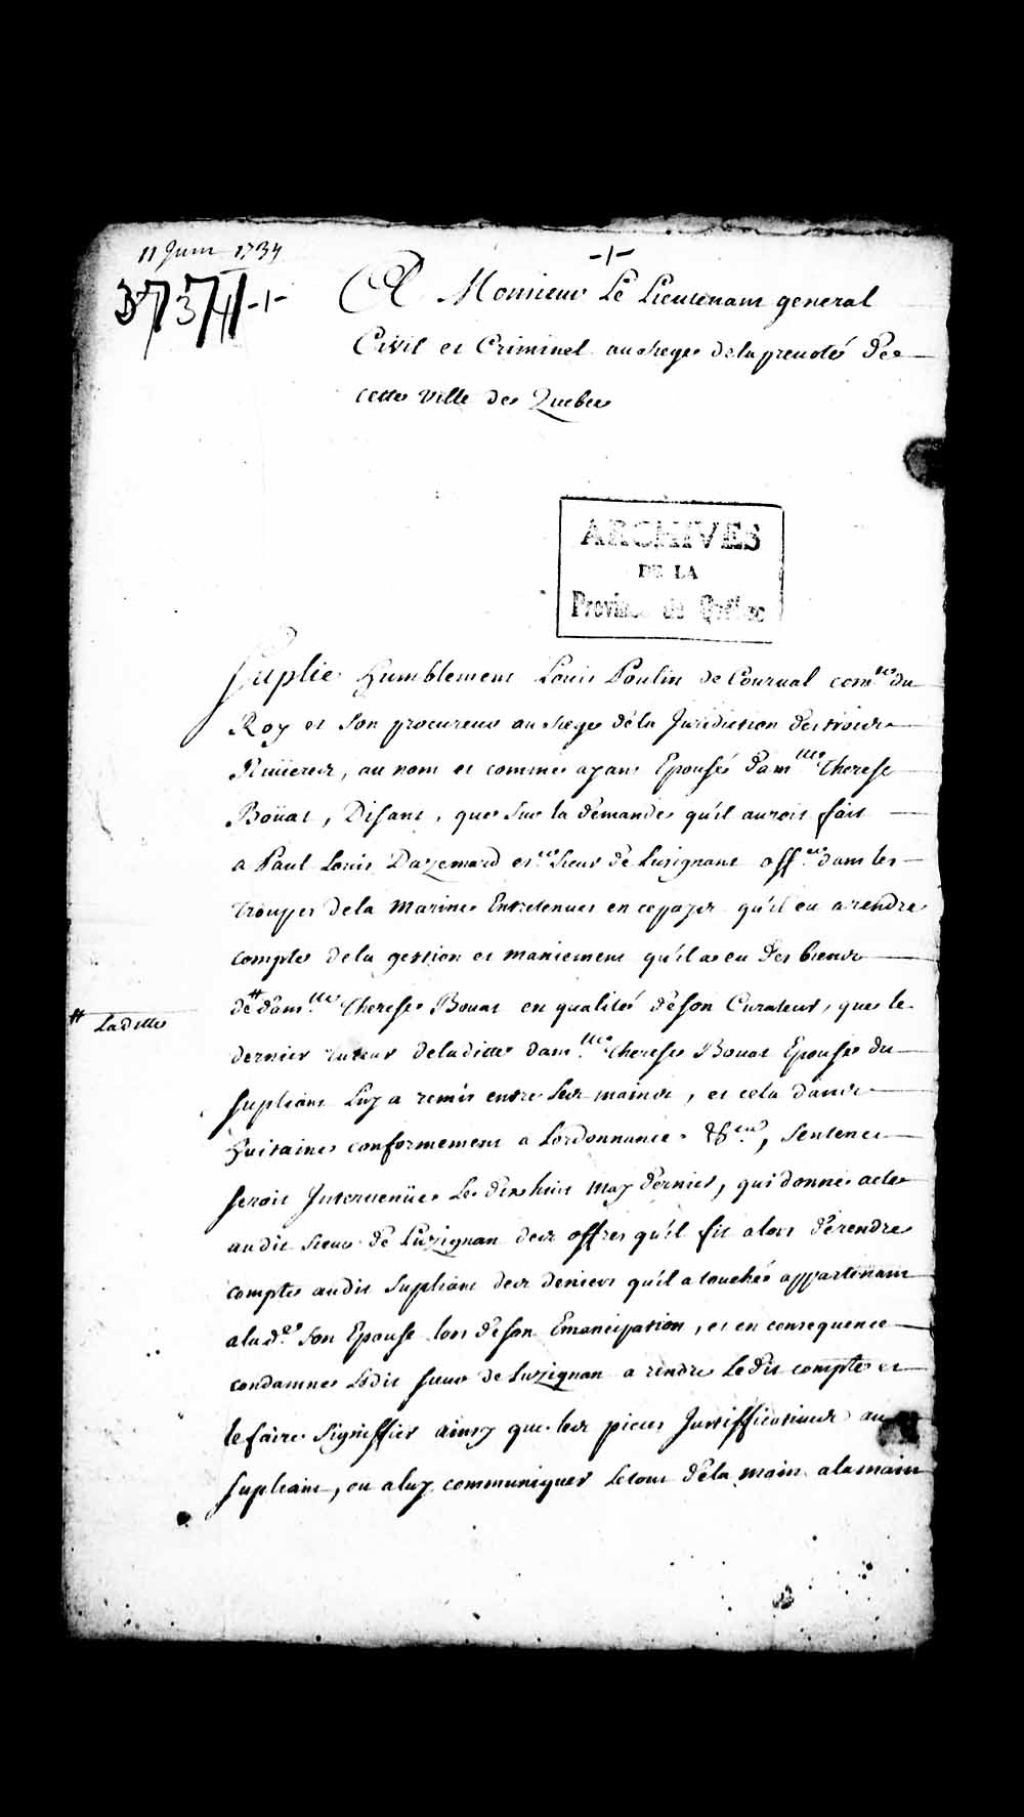 11 Juin 1734
-1-
3737 -1-
A Monsieur Le Lieutenant general
Civil et Criminel au siege dela prevoté de
cette ville de Quebec
ARCHIVES
DE LA
Province de Québec
Suplie humblement Louis Poulin de Courval cons.er du
Roy et son procureur au siege de la Juridiction des trois
Riuieres, au nom et comme ayant Epousé dam.lle Therese
Boüat, Disant, que sur la demande qu'il auroit fait
a Paul Louis Dazemard Sieur de Lusignant off.er dans les
trouppes dela marine Entretenues en ce pays qu'il eu a rendre
compte dela gestion et maniement qu'il a eu des biens
de # dam.lle Therese Bouat en qualité de son Curateur, que le
# Laditte
dernier tuteur deladitte dam.lle Therese Bouat Epouse du
supliant Luy a remis entre les mains, et cela dans
huitaine conformement a Lordonnance, Sentence
seroit Interuenüe Le dix huit may dernier, qui donne acte
audit sieur de Luzignan des offres qu'il fit alors de rendre
compte audit supliant des deniers qu'il a touchés appartenant
a la d.e son Epouse lors de son Emancipation, et en consequence
condamne Ledit sieur de Luzignan a rendre Ledit compte et
le faire signiffier ainsy que les pieces Justifficatiues au
supliant, ou a luy communiquer le tout de la main a la main